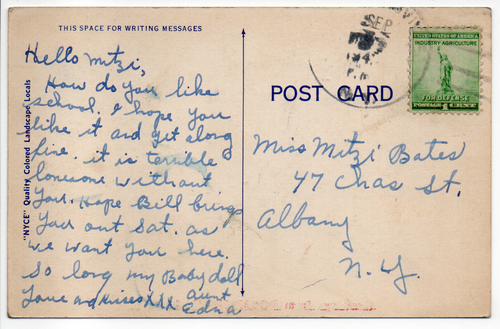 THIS SPACE FOR WRITING MESSAGES
Hello Mitzi,
How do you like
school. I hope you
like it and get along
fine. it is terrible
lonesome without
You. Hope Bill brings
you out Sat. as
we want you here.
So long my Baby doll
Love and Kisses XXX aunt
Edna
"NYCE" Quality Colored Landscape Locals
POST CARD
SEP
UNITED STATES OF AMERICA
INDUSTRY AGRICULTURE
FOR DEFENSE
POSTAGE 1 CENT
Miss Mitzi Bates
47 Chas St.
Albany
N.Y.